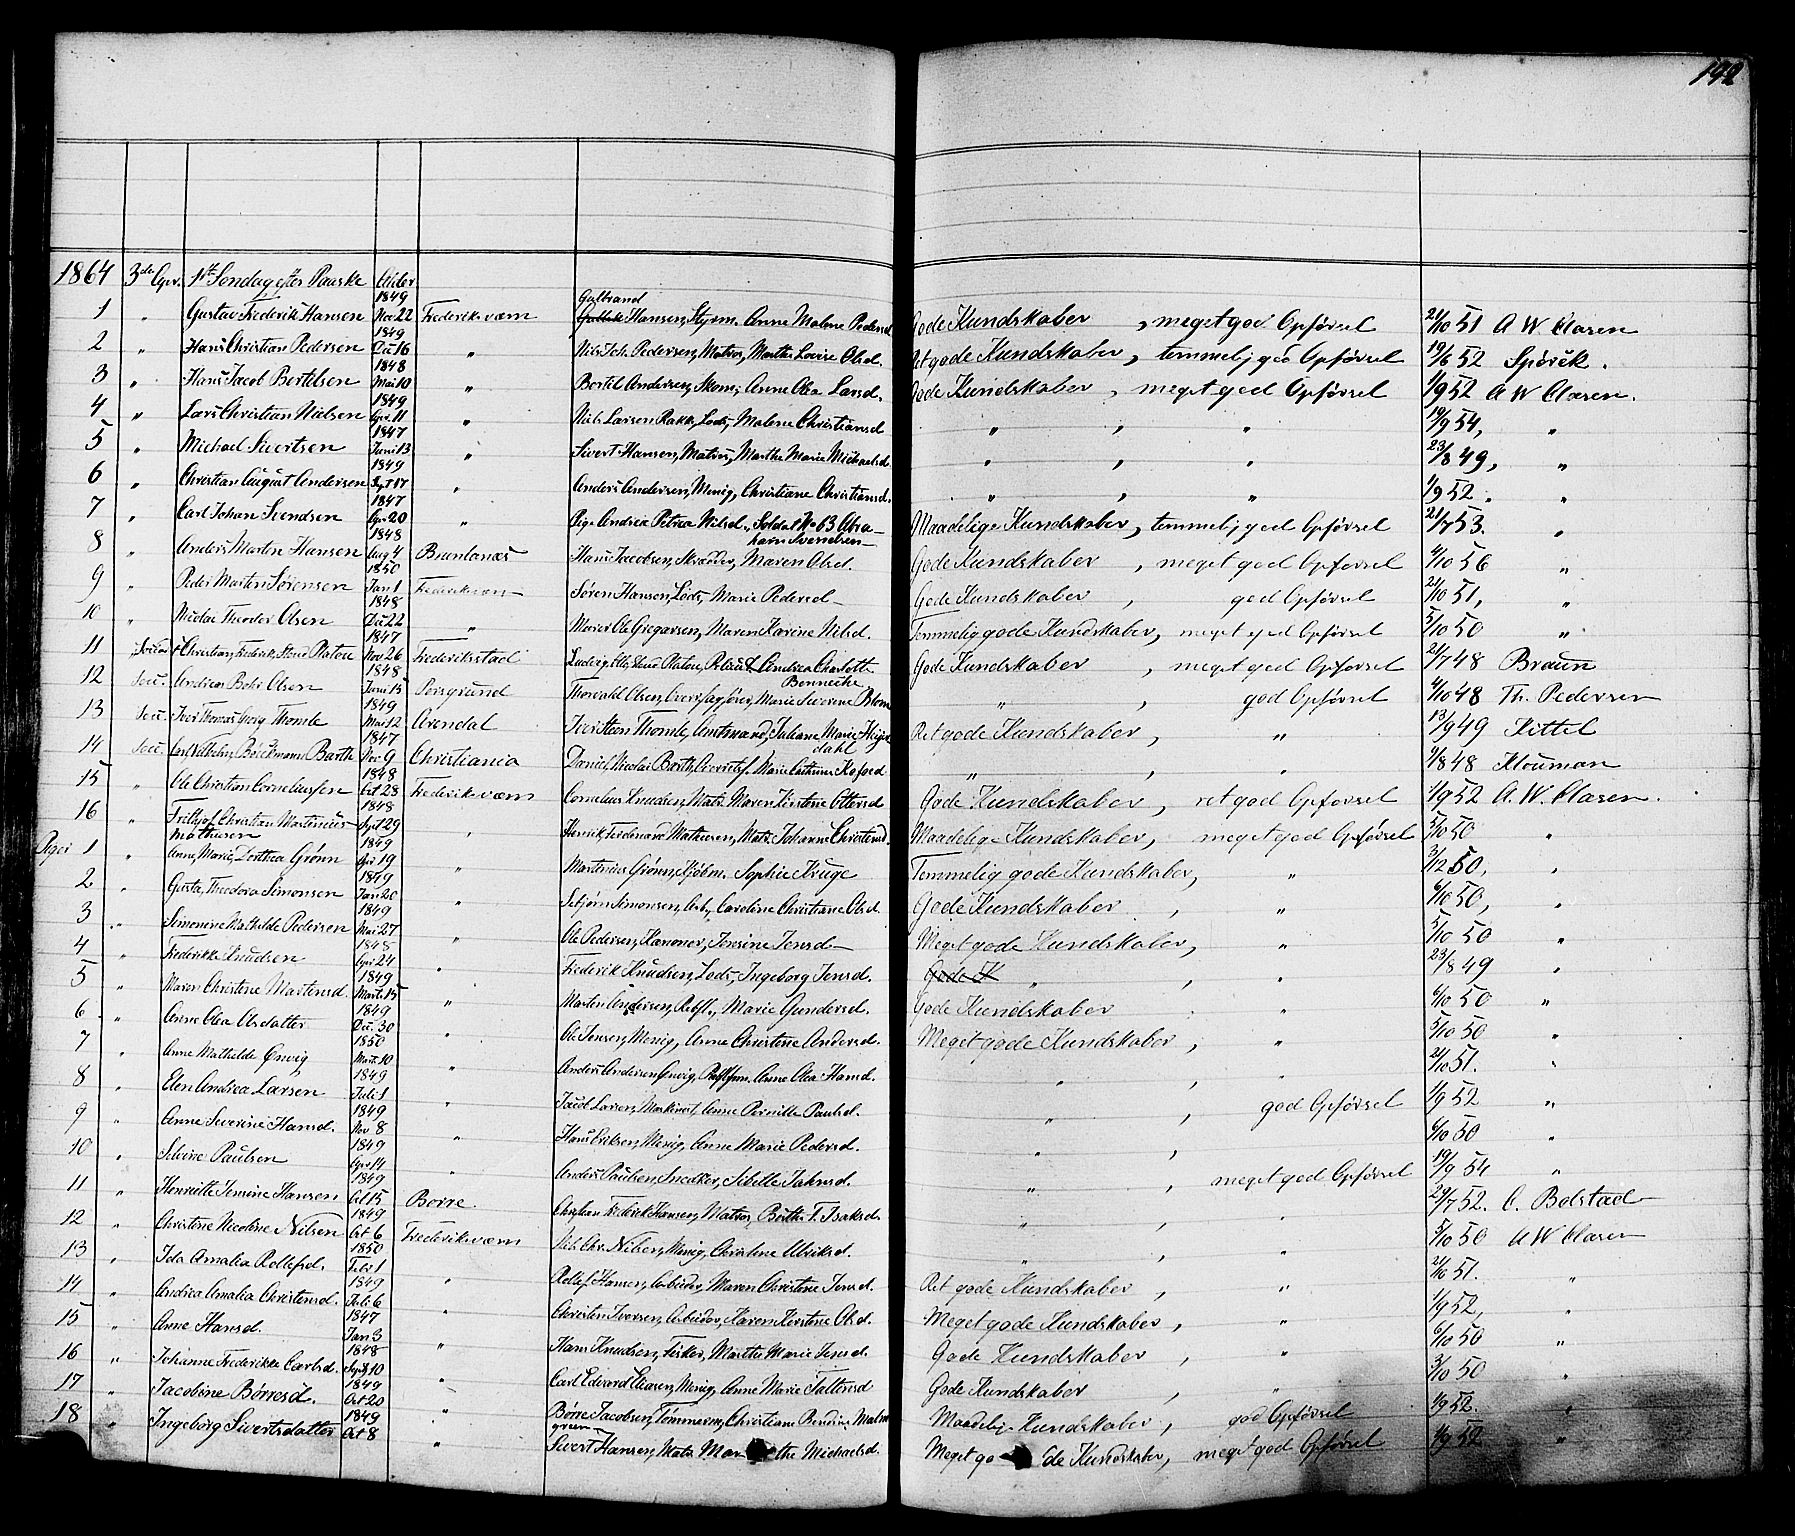 192
1864 3de Apr. 1ste Søndag efter Paaske Alder
1 " Gustav Frederik Hansen 1849 Nov 22 Frederiksværn Gulbrand Hansen, Styrm. Anne Malene Pedersd. Gode Kundskaber, meget god Opførsel 21/10 51 A W Clasen
2 " Hans Christian Pedersen 1849 Dec 16 " Nils Joh. Pedersen, Matros, Marthe Lovise Olsd. Ret gode Kundskaber, temmelig god Opførsel 19/6 52 Spörck.
3 " Hans Jacob Bertelsen 1848 Mai 10 " Bertel Andersen, Skom, Anne Olea Larsd. Gode Kundskaber, meget god Opførsel 1/9 52 A W Clasen.
4 " Lars Christian Nielsen 1849 Apr 11 " Niels Larsen Rakke, Lods, Malene Christiansd " , " 19/9 54, "
5 " Michael Sivertsen 1847 Juni 13 " Sivert Hansen, Matros, Marthe Marie Michaelsd. " , " 23/8 49, "
6 " Christian August Andersen 1849 Sept 17 " Anders Andersen, Menig, Christiane Christiansd. " , " 1/9 52. "
7 " Carl Johan Svendsen 1847 Apr 20 " Pige Andrea Petrea Nilsd., Soldat No 63 Abraham Svendsen Maadelige Kundskaber, temmelig god Opførsel 21/7 53. "
8 " Anders Martin Hansen 1848 Aug 4 Brunlanæs Hans Jacobsen, Skrædder, Maren Olsd. Gode Kundskaber, meget god Opførsel 4/10 56 "
9 " Peder Martin Sørensen 1850 Jan 1 Frederiksværn Søren Hansen, Lods, Marie Pedersd Gode Kundskaber, god Opførsel 21/10 51, "
10 " Nicolai Theodor Olsen 1848 Dec 22 " Murer Ole Gregarsen, Maren Karine Nilsd. Temmelig gode Kundskaber, meget god Opførsel 5/10 50 "
11 Christian, Frederik, Stoud Platou 1847 Nov 26 Frederiksstad Ludvig Stoud Platou, Andrea Charlott Bennecke Gode Kundskaber, meget god Opførsel 21/7 48 Braun
12 Andreas Bohr Olsen 1848 Juni 15 Porsgrund Thorvald Olsen, Marie Severine Blom " , god Opførsel 4/10 48 Th. Pedersen
13 Iver Thomas Georg Thomle 1849 Mai 12 Arendal Iver Steen Thomle, Amtmand, Juliane Marie Heyerdahl Ret gode Kundskaber, " 13/9 49 Kittel
14 Carl Vilhelm Böckmann Barth 1847 Nov 9 Christiania Daniel Nicolai Barth, Marie Cathrine Kofoed " , " 1/8 48 Klouman
15 " Ole Christian Corneliussen 1848 Oct 28 Frederiksværn Cornelius Knudsen, Mats. Maren Kirstine Ottersd Gode Kundskaber, ret god Opførsel 1/9 52 A. W. Clasen.
16 " Frithjof Christian Martinius Mathisen 1848 Sept 29 " Henrik Ferdinand Mathisen, Mats, Johanne Christensd. Maadelige Kundskaber, meget god Opførsel 5/10 50 "
Piger 1 " Anne, Marie, Dorthea Grønn 1849 Apr 19 " Martinius Grønn, Kjøbm. Sophie Kruge Temmelig gode Kundskaber, " 3/12 50, "
2 " Gusta, Theodora Simonsen 1849 Jan 20 " Sebjørn Simonsen, Arb, Caroline Christiane Olsd Gode Kundskaber, " 6/10 50, "
3 " Simonine Mathilde Pedersen 1849 Mai 27 " Ole Pedersen, Kanoner, Jensine Jensd Meget gode Kundskaber, " 5/10 50 "
4 " Frederikke Knudsen 1848 Apr 24 " Frederik Knudsen, Lods, Ingeborg Jensd. Gode K " , " 23/8 49 "
5 " Maren Christine Martinsd. 1849 Marts 15 " Martin Andersen, Marie Gundersd. Gode Kundskaber " 6/10 50 "
6 " Anne Olea Olsdatter 1849 Dec. 30 " Ole Jensen, Menig, Anne Christine Andersd. Meget gode Kundskaber, " 5/10 50 "
7 " Anne Mathilde Envig 1850 Marts 10 " Anders Andersen Envig, Anne Olea Hansd. " , " 21/10 51. "
8 " Elen Andrea Larsen 1849 Juli 1 " Jacob Larsen, Anne Pernille Paulsd. " , god Opførsel 1/9 52 "
9 " Anne Severine Hansd. 1849 Nov 8 " Hans Eriksen, Menig, Anne Marie Pedersd. " , 6/10 50 "
10 " Silvine Paulsen 1849 Apr 14 " Anders Paulsen, Snedker, Sibille Jahnsd. " , meget god Opførsel 19/9 54 "
11 " Henriette Jemine Hansen 1849 Oct 15 Borre Christian Frederik Hansen, Matros, Berthe T. Isaksd. " , " 29/7 52. C. Bolstad
12 " Christine Nicoline Nilsen 1849 Oct 6 Frederiksværn Nils Chr. Nilsen, Menig, Christine Ulriksd. " , 5/10 50 A W Clasen
13 " Ida Amalia Rollefsd. 1850 Febr 1 " Rollef Hansen, Arbeider, Maren Christine Jensd. Ret gode Kundskaber, " 21/10 51. "
14 " Andrea Amalia Christensd. 1849 Juli 6 " Christen Iversen, Arbeider, Karen Kirstine Olsd. Meget gode Kundskaber, " 1/9 52, "
15 " Anne Hansd. 1847 Jan 3 " Hans Knudsen, Fisker, Marthe Marie Jensd. Gode Kundskaber, " 6/10 50 "
16 " Johanne Frederikke Carlsd. 1848 Sept 10 " Carl Edvard Eliasen, Menig, Anne Marie Tallensd Gode Kundskaber, " 3/10 50 "
17 " Jacobine Børresd. 1849 Oct 20 " Børre Jacobsen, Tømmerm, Christiane Bendine Malmgreen Maadelige Kundskaber, god Opførsel 1/9 52. "
18 " Ingeborg Sivertsdatter 1849 Oct 8 " Sivert Hansen, Mats, Marthe Michaelsd. Meget gode Kundskaber, meget god Opførsel 1/9 52 "